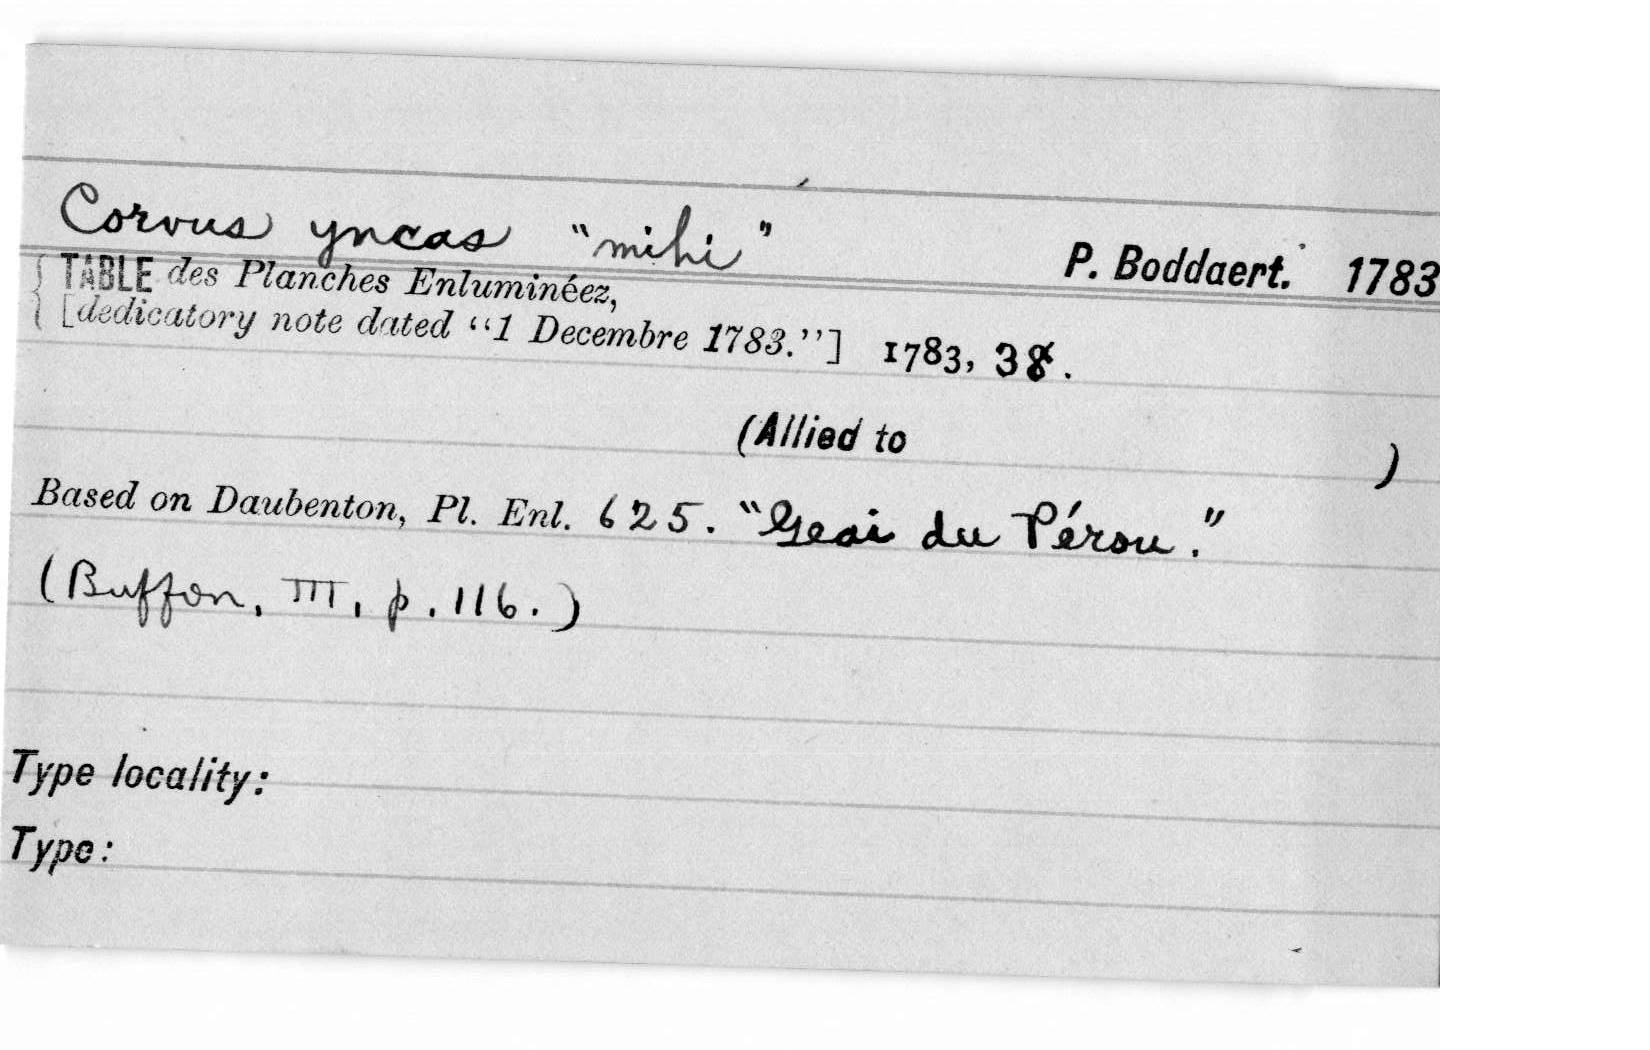 Corvus yncas "mihi"
P. Boddaert. 1783
TABLE des Planches Enluminéez,
[dedicatory note dated "1 Decembre 1783."] 1783, 38.
(Allied to )
Based on Daubenton, Pl. Enl. 625. "Geai du Pérou."
(Buffon, III, p. 116.)
Type locality:
Type: